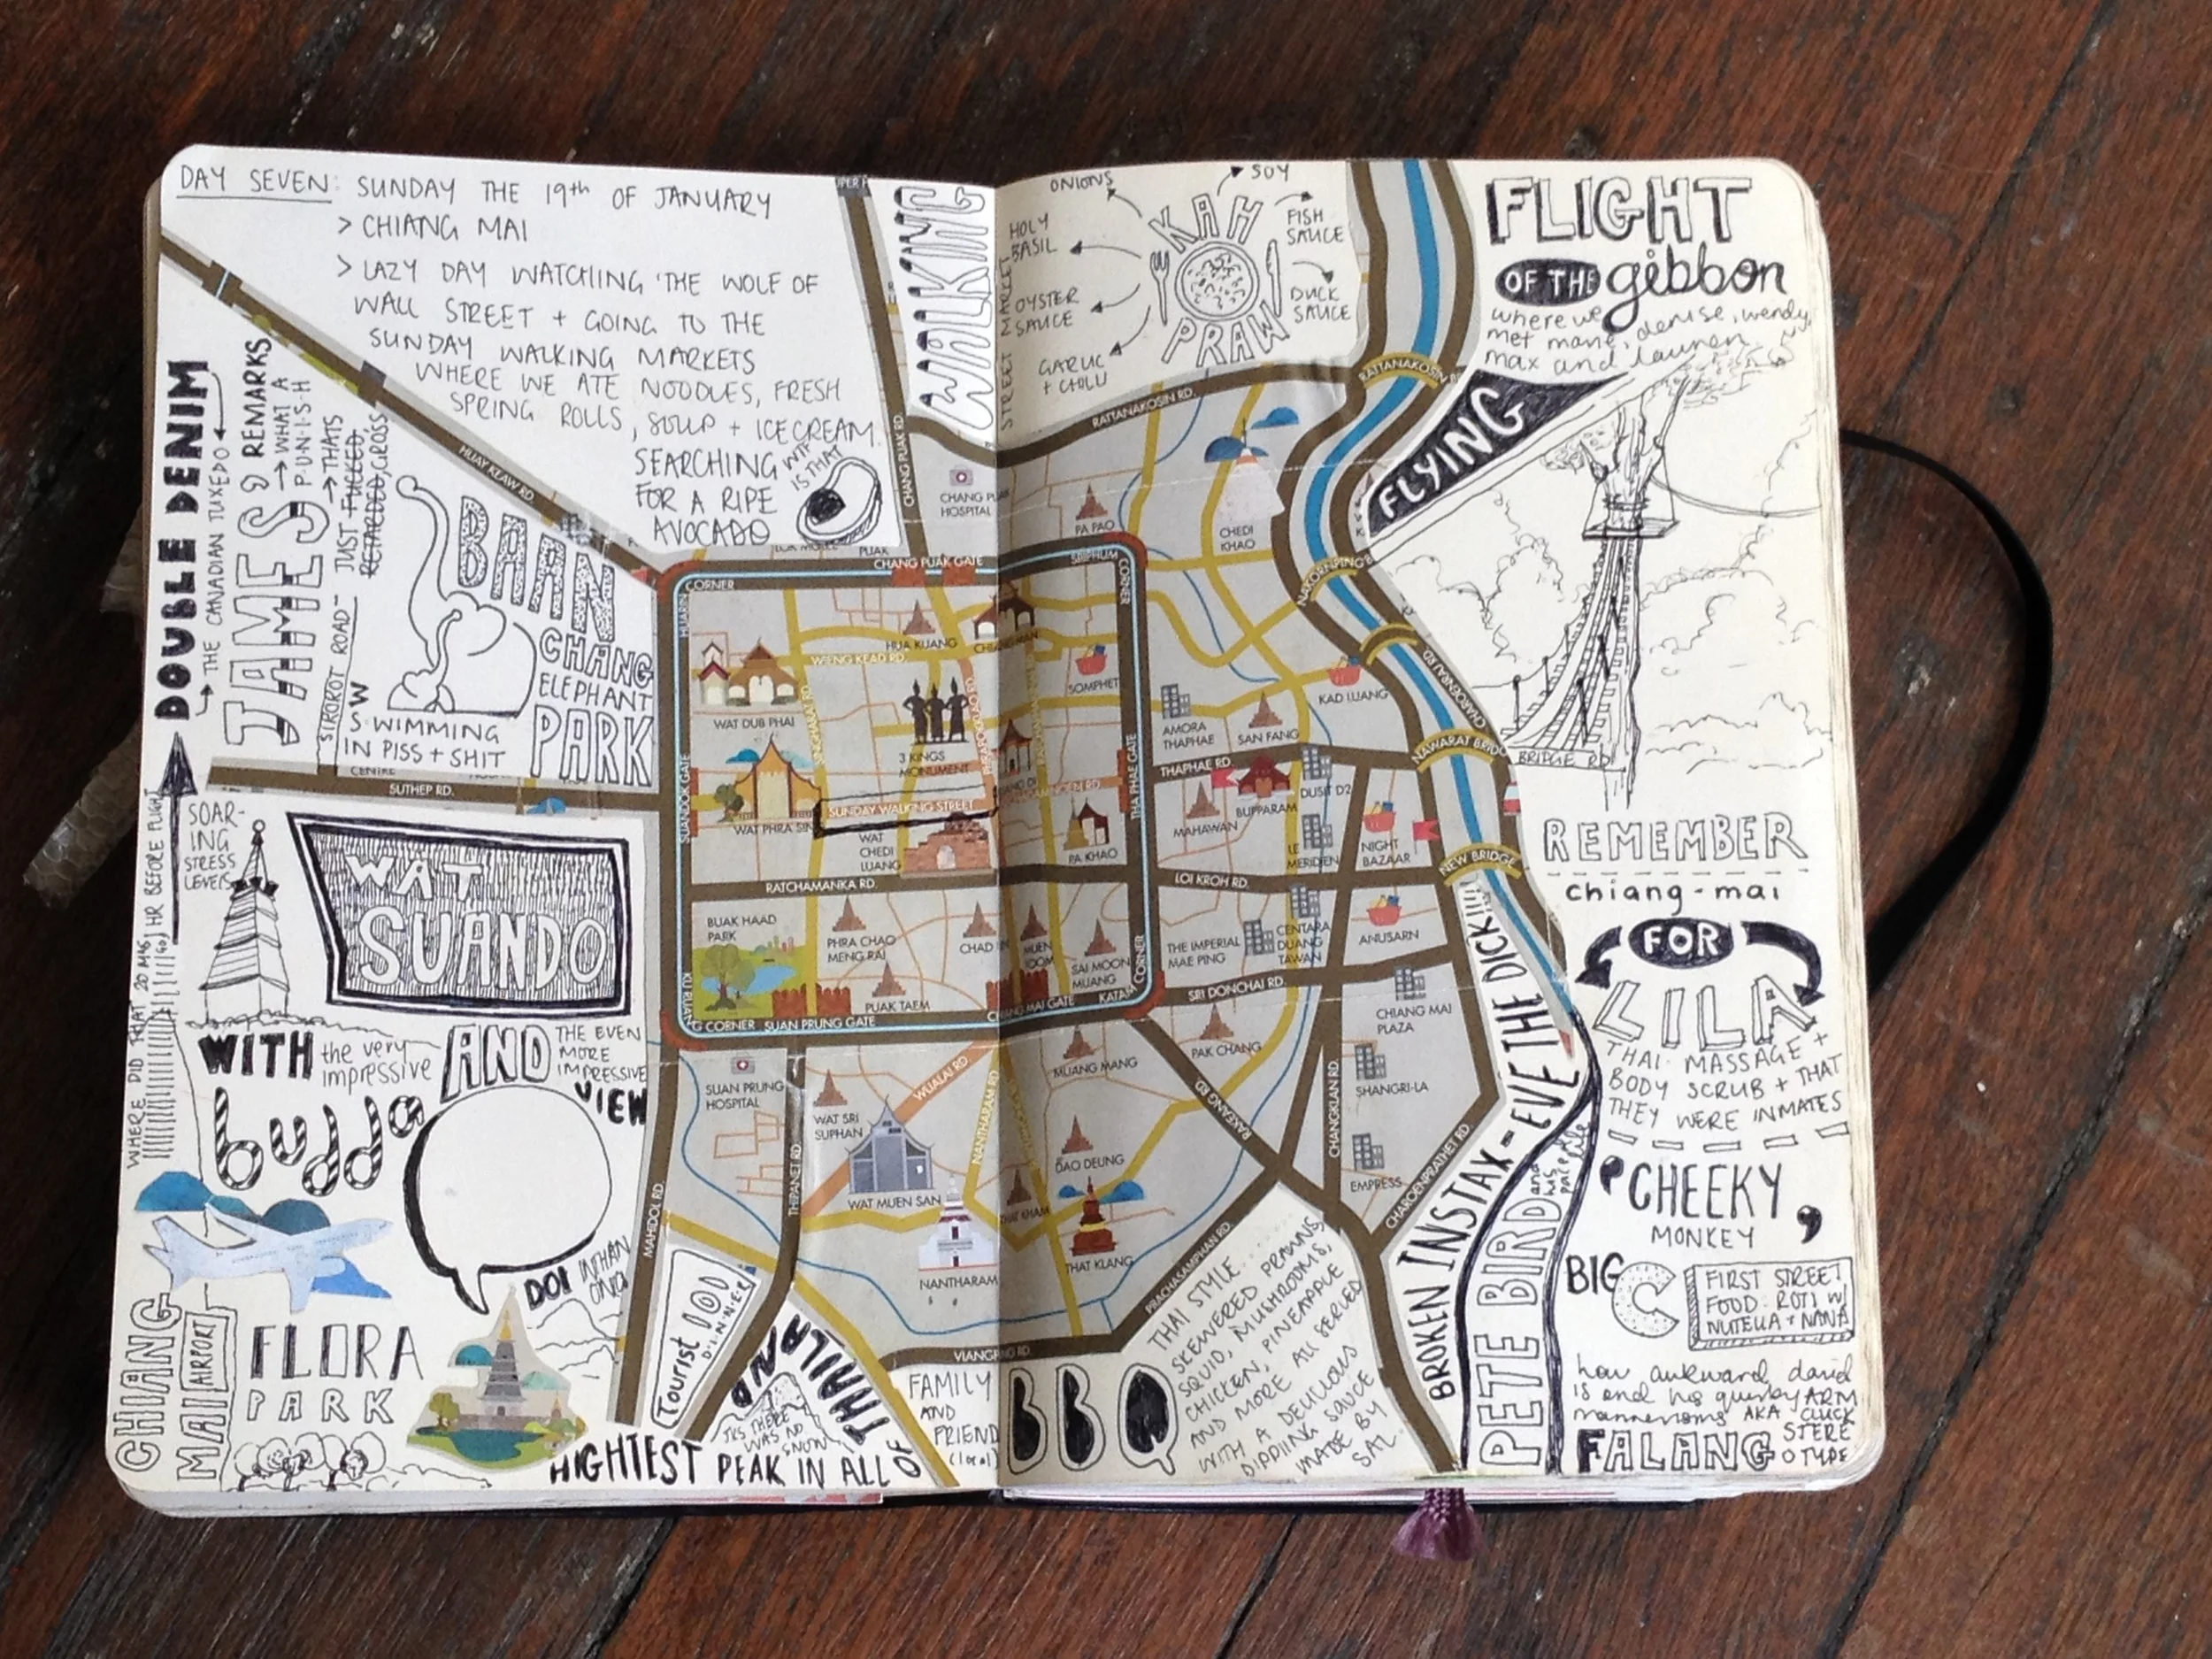 DAY SEVEN: SUNDAY THE 19th OF JANUARY
> CHIANG MAI
> LAZY DAY WATCHING 'THE WOLF OF
WALL STREET + GOING TO THE
SUNDAY WALKING MARKETS
WHERE WE ATE NOODLES, FRESH
SPRING ROLLS, SOUP + ICECREAM.
SEARCHING
FOR A RIPE
AVOCADO
WTF
IS THAT
DOUBLE DENIM
→ THE CANADIAN TUXEDO
JAMES
& REMARKS
→ WHAT A
P·U·N·I·S·H
→ THATS
JUST FUCKED,
RETARDED, GROSS
SIROKOT ROAD
BAAN
CHANG
ELEPHANT
PARK
S·WIMMING
IN PISS + SHIT
WALKING
STREET MARKET
KAH
PRAW
ONIONS
SOY
HOLY
BASIL
FISH
SAUCE
OYSTER
SAUCE
DUCK
SAUCE
GARLIC
+ CHILLI
FLIGHT
OF THE gibbon
where we
met marie, denise, wendy,
max and lauren
FLYING
BRIDGE RD
HUAY KEAW RD.
CHANG PUAK RD.
RATTANAKOSIN RD.
RATTANAKOSIN
CHANG PUAK
HOSPITAL
PA PAO
CHEDI
KHAO
CHANG PUAK GATE
SRIPHUM
CORNER
CORNER
HUARIN
NAKORNPING B
HUA KUANG
WIENG KEAD RD.
WAT DUB PHAI
SINGHARAT RD.
3 KINGS
MONUMENT
PRAPOKKLAO RD.
SOMPHET
KAD LUANG
CHAROENRAJ RD.
AMORA
THAPHAE
SAN FANG
NAWARAT BRIDG
THAPHAE RD.
THA PHAE GATE
DUSIT D2
BUPPARAM
MAHAWAN
SUTHEP RD.
CENTRE
SUANDOK GATE
WAT PHRA SIN
SUNDAY WALKING STREET
WAT
CHEDI
LUANG
PA KHAO
LE
MERIDIEN
NIGHT
BAZAAR
NEW BRIDGE
RATCHAMANKA RD.
LOI KROH RD.
BUAK HAAD
PARK
PHRA CHAO
MENG RAI
CHAD
MUEN
SAI MOON
MUANG
THE IMPERIAL
MAE PING
CENTARA
DUANG
TAWAN
ANUSARN
PUAK TAEM
KATAM
CORNER
SRI DONCHAI RD.
CORNER
SUAN PRUNG GATE
MAI GATE
CHIANG MAI
PLAZA
SUAN PRUNG
HOSPITAL
MUANG MANG
PAK CHANG
SHANGRI-LA
WUALAI RD.
WAT SRI
SUPHAN
NANTHARAM RD.
RAKGANG RD.
CHANGKLAN RD.
WAT MUEN SAN
DAO DEUNG
EMPRESS
CHAROENPRATHET RD.
THIPANET RD.
MAHIDOL RD.
THAT KHAM
NANTHARAM
THAT KLANG
PRACHASAMPHAN RD.
SOAR-
ING
STRESS
LEVELS
WHERE DID THAT 20 MGS GO HR BEFORE FLIGHT
WAT
SUANDO
WITH the very
impressive
budda
AND THE EVEN
MORE
IMPRESSIVE
VIEW
CHIANG
MAI AIRPORT
FLORA
PARK
DOI INTHAN
ON(K)
Tourist 101
D·I·N·N·E·R
HIGHTEST PEAK IN ALL
OF THAILAND
THERE
WAS NO
SNOW
FAMILY
AND
FRIEND
(local)
BBQ
THAI STYLE.
SKEWERED PRAWNS,
SQUID, MUSHROOMS,
CHICKEN, PINEAPPLE
AND MORE. ALL SERVED
WITH A DELICIOUS
DIPPING SAUCE
MADE BY
SAL.
BROKEN INSTAX - EVE THE DICK!!!!
PETE BIRD
and
his
REMEMBER
chiang-mai
FOR
LILA
THAI MASSAGE +
BODY SCRUB + THAT
THEY WERE INMATES
'CHEEKY
MONKEY'
BIG C
FIRST STREET
FOOD: ROTI W/
NUTELLA + NANA
how awkward david
is and his quirky ARM
mannerisms AKA CLUCK
FALANG STERE
OTYPE